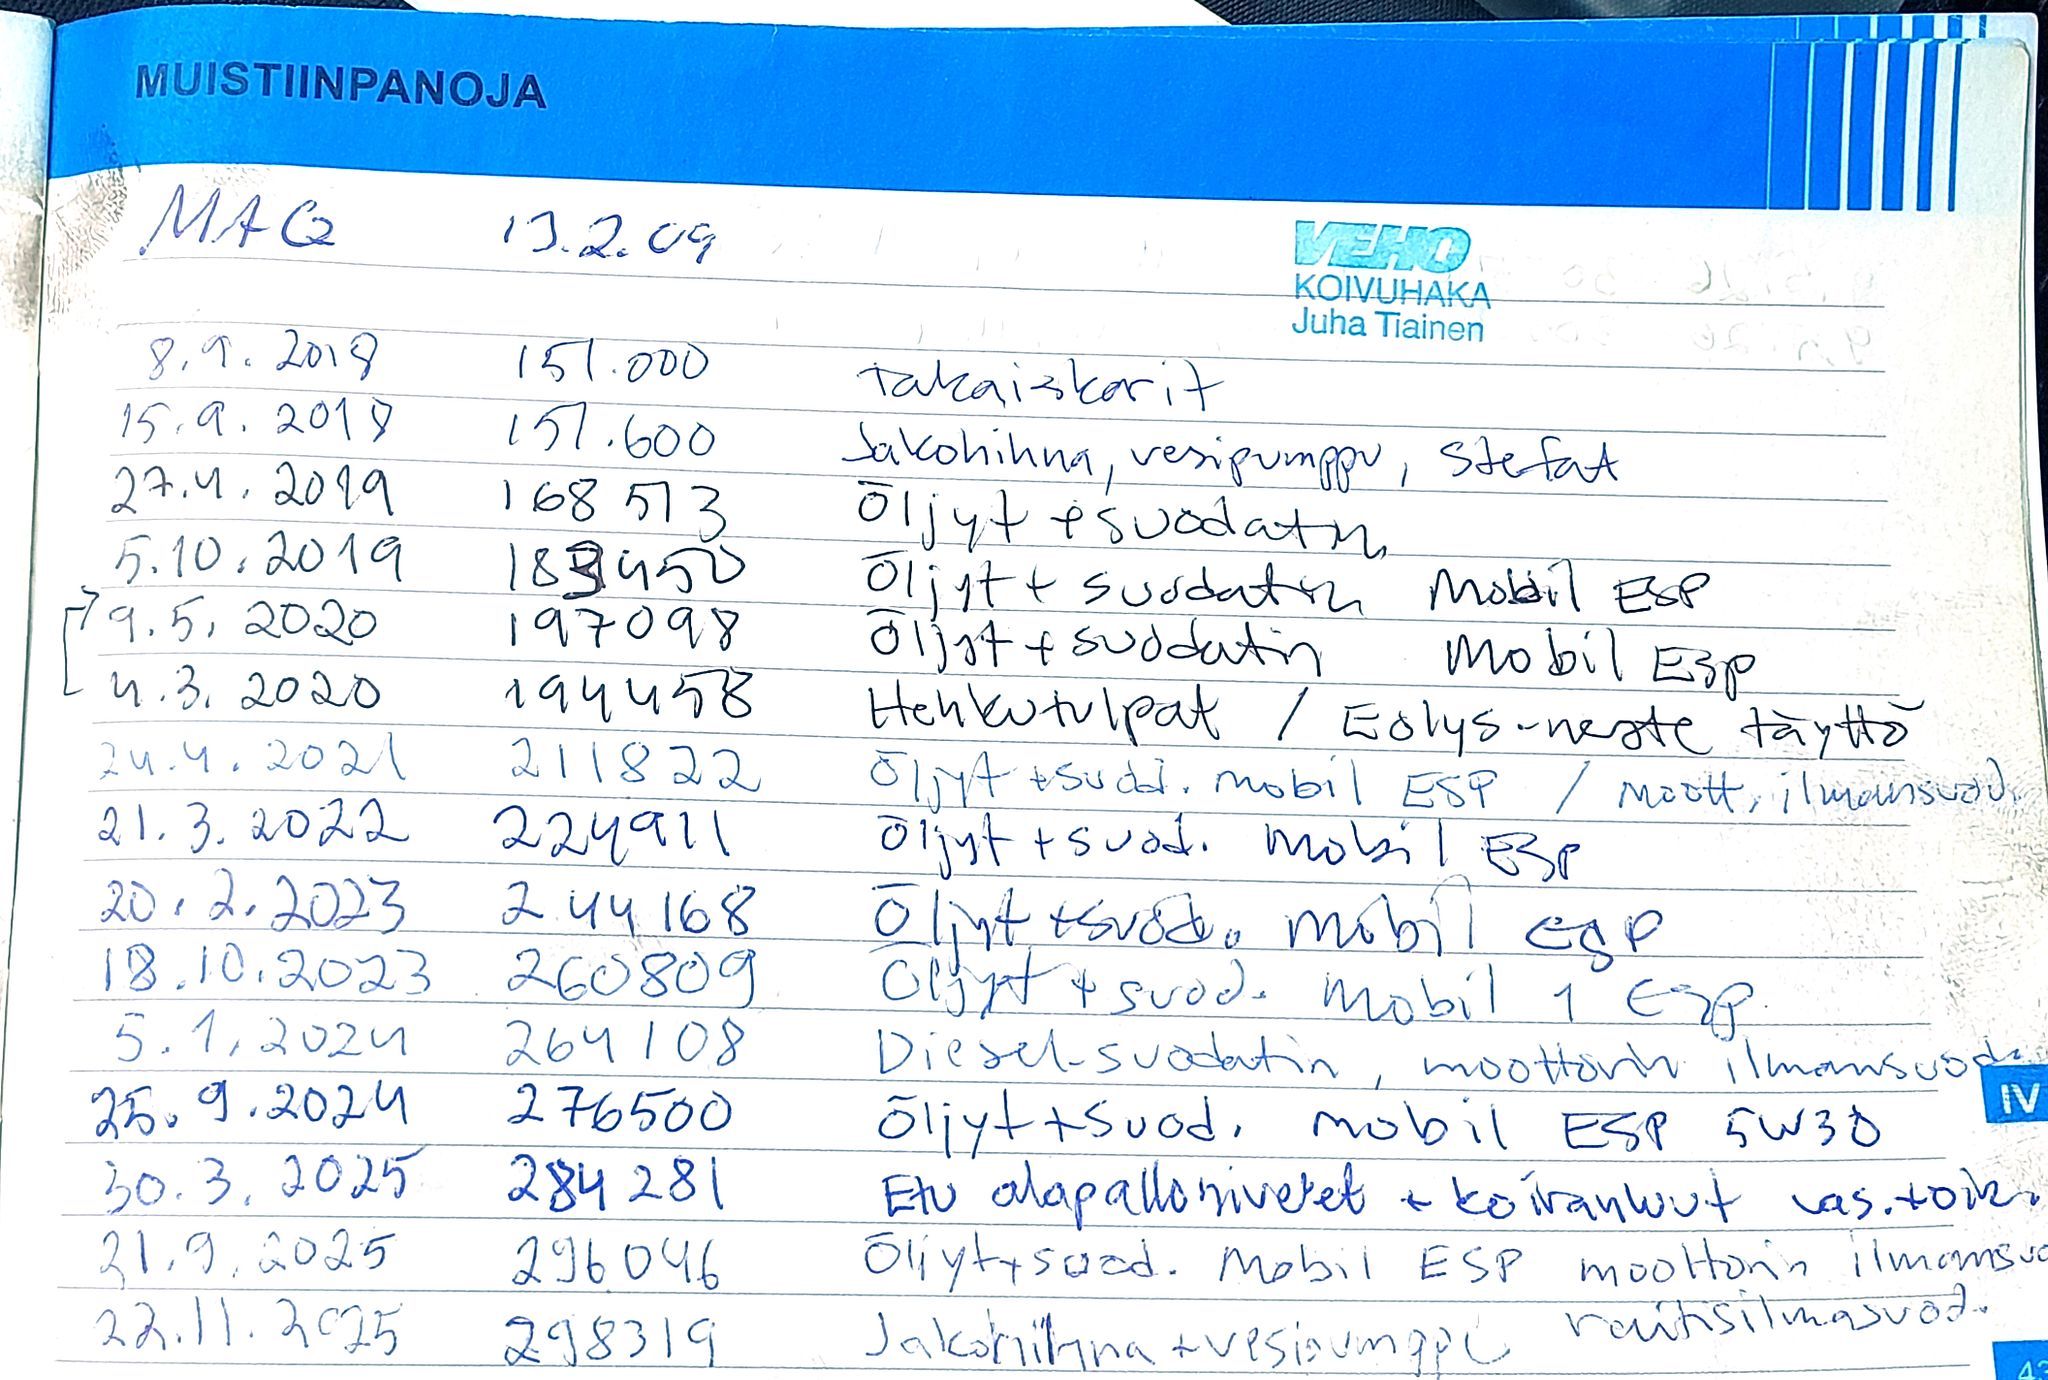 MUISTIINPANOJA
MAQ 13.2.09
VEHO
KOIVUHAKA
Juha Tiainen
8.9. 2018 151.000 Takaiskarit
15.9. 2018 151.600 Jakohihna, vesipumppu, Stefat
27.4. 2019 168 513 Öljyt + suodatin
5.10.2019 183450 Öljyt + suodatin Mobil ESP
9.5. 2020 197098 Öljyt + suodatin Mobil ESP
4.3. 2020 194458 Hehkutulpat / Eolys-neste täyttö
24.4. 2021 211822 Öljyt + suod. Mobil ESP / moott. ilmansuod.
21.3.2022 224911 Öljyt + suod. Mobil ESP
20.2.2023 244168 Öljyt + suod. Mobil ESP
18.10.2023 260809 Öljyt + suod. Mobil 1 ESP
5.1.2024 264108 Diesel-suodatin, moottorin ilmansuod.
IV
25.9.2024 276500 Öljyt + suod. Mobil ESP 5W30
30.3.2025 284 281 Etu alapallonivelet + koiranluut vas. + oik.
21.9.2025 296046 Öljyt + suod. Mobil ESP moottorin ilmansuo
raitisilmasuod.
22.11.2025 298319 Jakohihna + vesipumppu
43